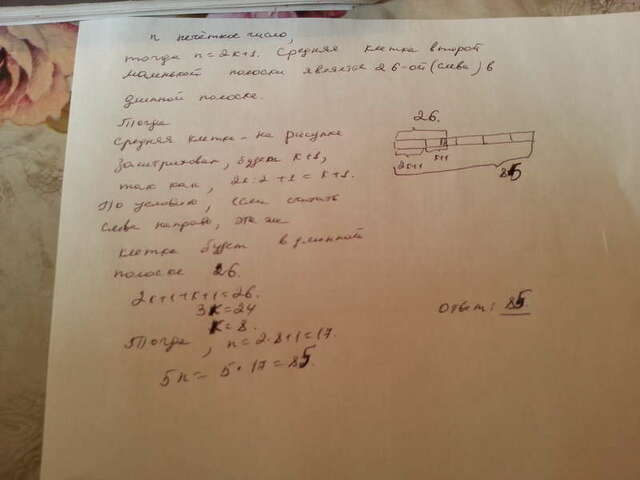 n нечётное число,
тогда n = 2k+1. Средняя клетка второй
маленькой полоски является 26-ой (слева) в
длинной полоске.
Тогда
средняя клетка - на рисунке
заштрихован, будет k+1,
так как, 2k:2+1=k+1.
По условию, если считать
слева направо, эта же
клетка будет в длинной
полоске 26.
2k+1+k+1=26.
3k=24
k=8.
Тогда, n=2·8+1=17.
5n = 5·17=85.
26.
2k+1
k+1
85
Ответ: 85.